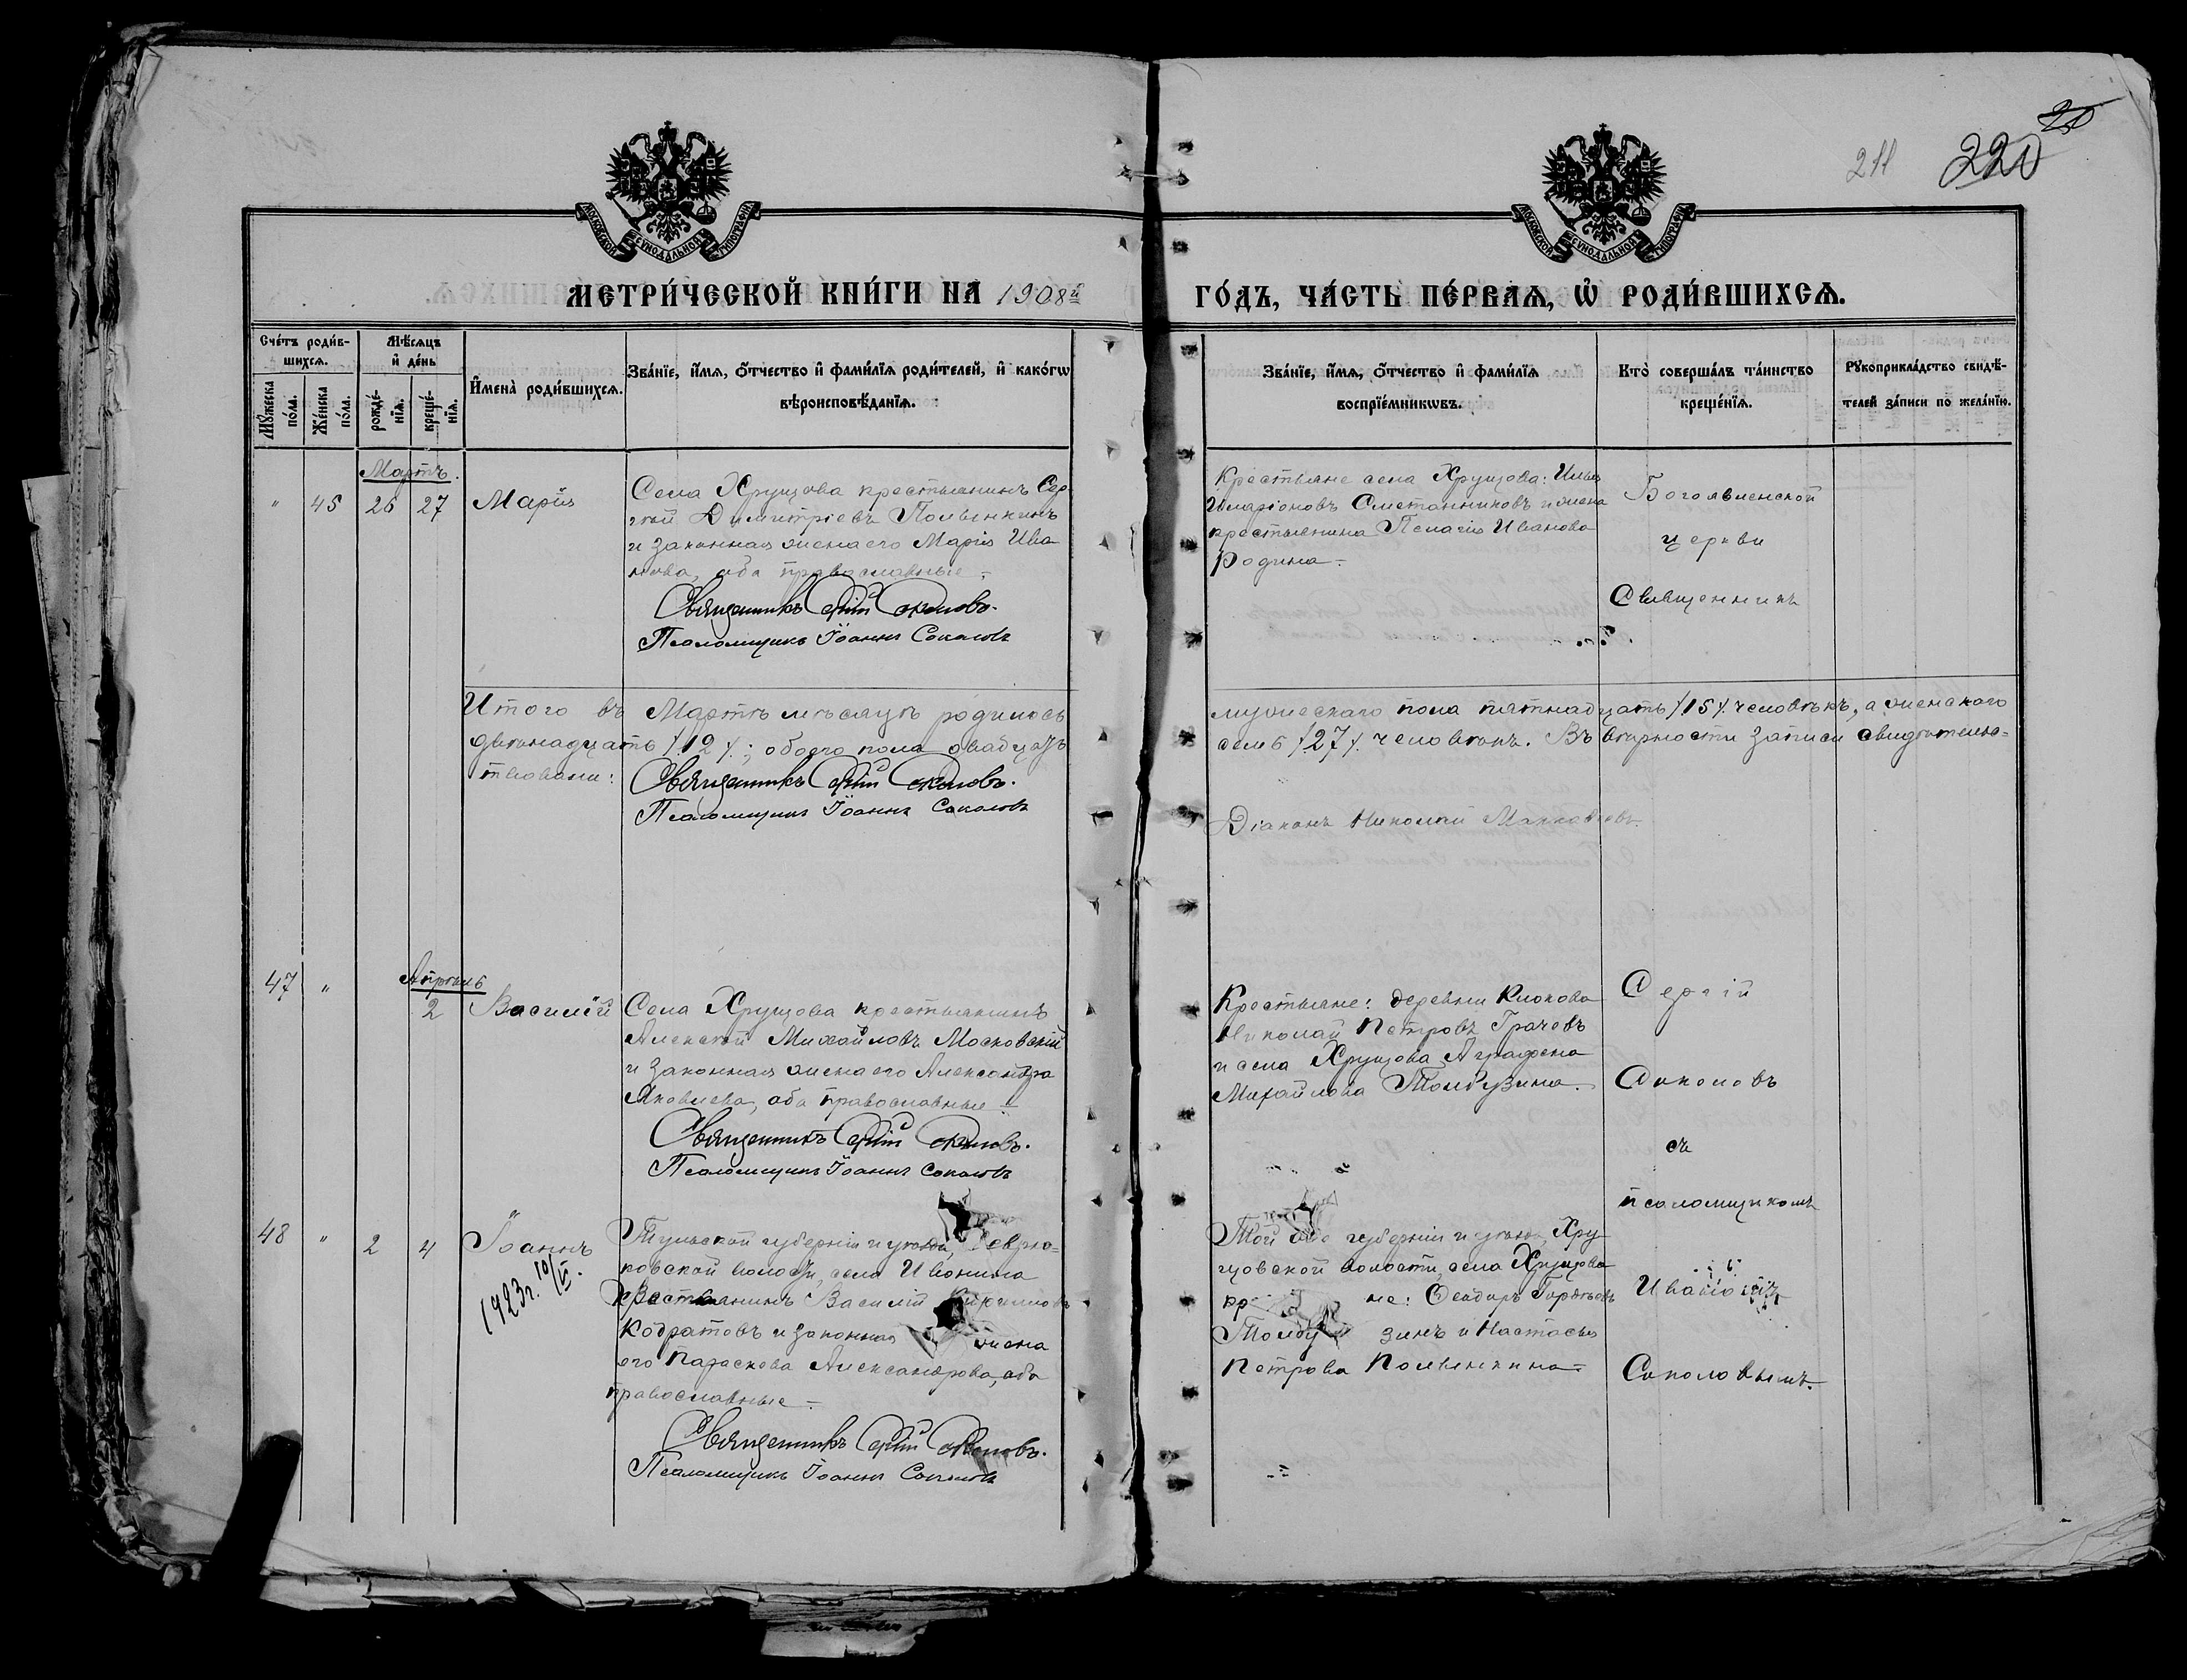 20
211 220
МОСКОВСКОЙ СѴНОДАЛЬНОЙ ТИПОГРАФІИ
МОСКОВСКОЙ СѴНОДАЛЬНОЙ ТИПОГРАФІИ
МЕТРИ́ЧЕСКОЙ КНИ́ГИ НА 1908й
ГО́ДЪ, ЧА́СТЬ ПЕ́РВАЯ, Ѡ҆ РОДИ́ВШИХСѦ.
Сче́тъ роди́в-
шихсѧ.
Мꙋ́жеска по́ла.
Же́нска по́ла.
Мѣ́сѧцъ
и҆ де́нь
рожде́-
нїѧ.
креще́-
нїѧ.
И҆мена̀ роди́вшихсѧ.
Зва́нїе, и҆́мѧ, ѻ҆́тчество и҆ фами́лїѧ роди́телей, и҆ како́гѡ
вѣроисповѣ́данїѧ.
Зва́нїе, и҆́мѧ, ѻ҆́тчество и҆ фами́лїѧ
воспрїе́мникѡвъ.
Кто̀ соверша́лъ та́инство
креще́нїѧ.
Рꙋкоприкла́дство свидѣ́-
телей за́писи по жела́нїю.
Мартъ.
" 45 26 27 Марія
Села Хрущова крестьянинъ Сер-
гѣй Димитріевъ Полынкинъ
и законная жена его Марія Ива
нова, оба православные -
Священникъ Сергій Соколовъ.
Псаломщикъ Іоаннъ Соколовъ
Крестьяне села Хрущова: Илья
Иларіоновъ Сметанниковъ и жена
крестьянина Пелагія Иванова
Родина -
Богоявленской
церкви
Священникъ
Итого въ Мартѣ мѣсяцѣ родилось
мужескаго пола пятнадцать /.15/. человѣкъ, а женскаго
двѣнадцать /.12/.; обоего пола двадцать
семь /.27/. человѣкъ. Въ вѣрности записи свидѣтельс-
твовали:
Священникъ Сергій Соколовъ.
Псаломщикъ Іоаннъ Соколовъ
Діаконъ Николай
Апрѣль
47 " 2 Василій
Села Хрущова крестьянинъ
Алексѣй Михайловъ Московскій
и законная жена его Александра
Яковлева, оба православные -
Священникъ Сергій Соколовъ.
Псаломщикъ Іоаннъ Соколовъ
Крестьяне: деревни Клокова
Николай Петровъ Грачевъ
и села Хрущова Аграфена
Михайлова Толбузина.
Сергій
Соколовъ
съ
псаломщикомъ
48 " 2 4 Іоаннъ
1923г. 10/VI.
Тульской губерніи и уѣзда,
ковской волости, села Ивонина
крестьянинъ Василій Кирилловъ
Кодратовъ и законная жена
его Параскева Александрова, оба
православные -
Священникъ Сергій Соколовъ.
Псаломщикъ Іоаннъ Соколовъ
Той же губерніи и уѣзда, Хру-
щовской волости, села Хрущова
кр не: Ѳеодоръ
Толбу зинъ и Настасья
Петрова Полынкина -
Соколовымъ.